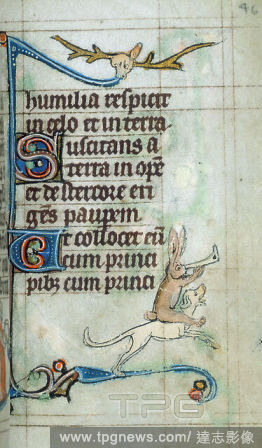 96
humilia respicit
in celo et in terra
Suscitans a
terra in ope
et de stercore eri
ges pauperem
Et collocet eu
cum princi
pibz cum princi
TPG
www.tpgnews.com/達志影像